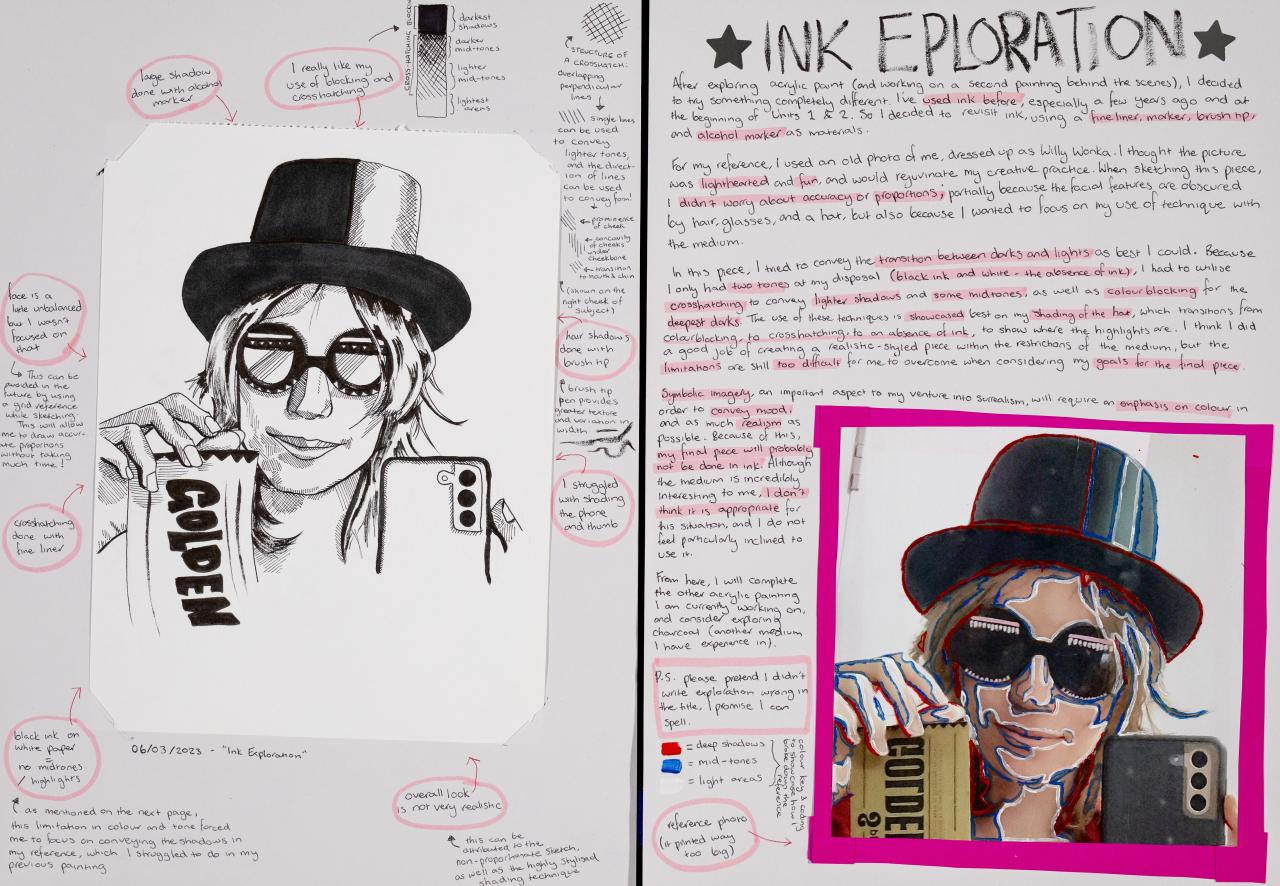 large shadow
done with alcohol
marker
I really like my
use of blocking and
crosshatching
CROSS-HATCHING
BLOCKING
darkest
shadows
darker
mid-tones
lighter
mid-tones
lightest
areas
STRUCTURE OF
A CROSSHATCH:
overlapping
perpendicular
lines
single lines
can be used
to convey
lighter tones,
and the direct-
ion of lines
can be used
to convey form!
prominence
of cheek
concavity
of cheeks
under
cheekbone
transition
to mouth & chin
(shown on the
right cheek of
subject)
hair shadows
done with
brush tip
brush tip
pen provides
greater texture
and variation in
width
I struggled
with shading
the phone
and thumb
face is a
little unbalanced
but I wasn't
focused on
that
This can be
avoided in the
future by using
a grid reference
while sketching.
This will allow
me to draw accur-
ate proportions
without taking
much time!
crosshatching
done with
fine liner
GOLDEN
black ink on
white paper
=
no midtones
/ highlights
as mentioned on the next page,
this limitation in colour and tone forced
me to focus on conveying the shadows in
my reference, which I struggled to do in my
previous painting
06/03/2023 - "Ink Exploration"
overall look
is not very realistic
this can be
attributed to the
non-proportionate sketch,
as well as the highly stylised
shading technique
INK EPLORATION
After exploring acrylic paint (and working on a second painting behind the scenes), I decided
to try something completely different. I've used ink before, especially a few years ago and at
the beginning of Units 1 & 2. So I decided to revisit ink, using a fineliner, marker, brush tip,
and alcohol marker as materials.
For my reference, I used an old photo of me, dressed up as Willy Wonka. I thought the picture
was lighthearted and fun, and would rejuvinate my creative practice. When sketching this piece,
I didn't worry about accuracy or proportions; partially because the facial features are obscured
by hair, glasses, and a hat, but also because I wanted to focus on my use of technique with
the medium.
In this piece, I tried to convey the transition between darks and lights as best I could. Because
I only had two tones at my disposal (black ink and white - the absence of ink), I had to utilise
crosshatching to convey lighter shadows and some midtones, as well as colourblocking for the
deepest darks. The use of these techniques is showcased best on my shading of the hat, which transitons from
colourblocking, to crosshatching, to an absence of ink, to show where the highlights are. I think I did
a good job of creating a realistic-styled piece within the restrictions of the medium, but the
limitations are still too difficult for me to overcome when considering my goals for the final piece.
Symbolic imagery, an important aspect to my venture into surrealism, will require an emphasis on colour in
order to convey mood,
and as much realism as
possible. Because of this,
my final piece will probably
not be done in ink. Although
the medium is incredibly
interesting to me, I don't
think it is appropriate for
this situation, and I do not
feel particularly inclined to
use it.
From here, I will complete
the other acrylic painting
I am currently working on,
and consider exploring
charcoal (another medium
I have experience in).
P.S. please pretend I didn't
write exploration wrong in
the title, I promise I can
spell.
= deep shadows
= mid-tones
= light areas
colour key & coding
to showcase how I
broke down the
reference
reference photo
(it printed way
too big)
GOLDEN